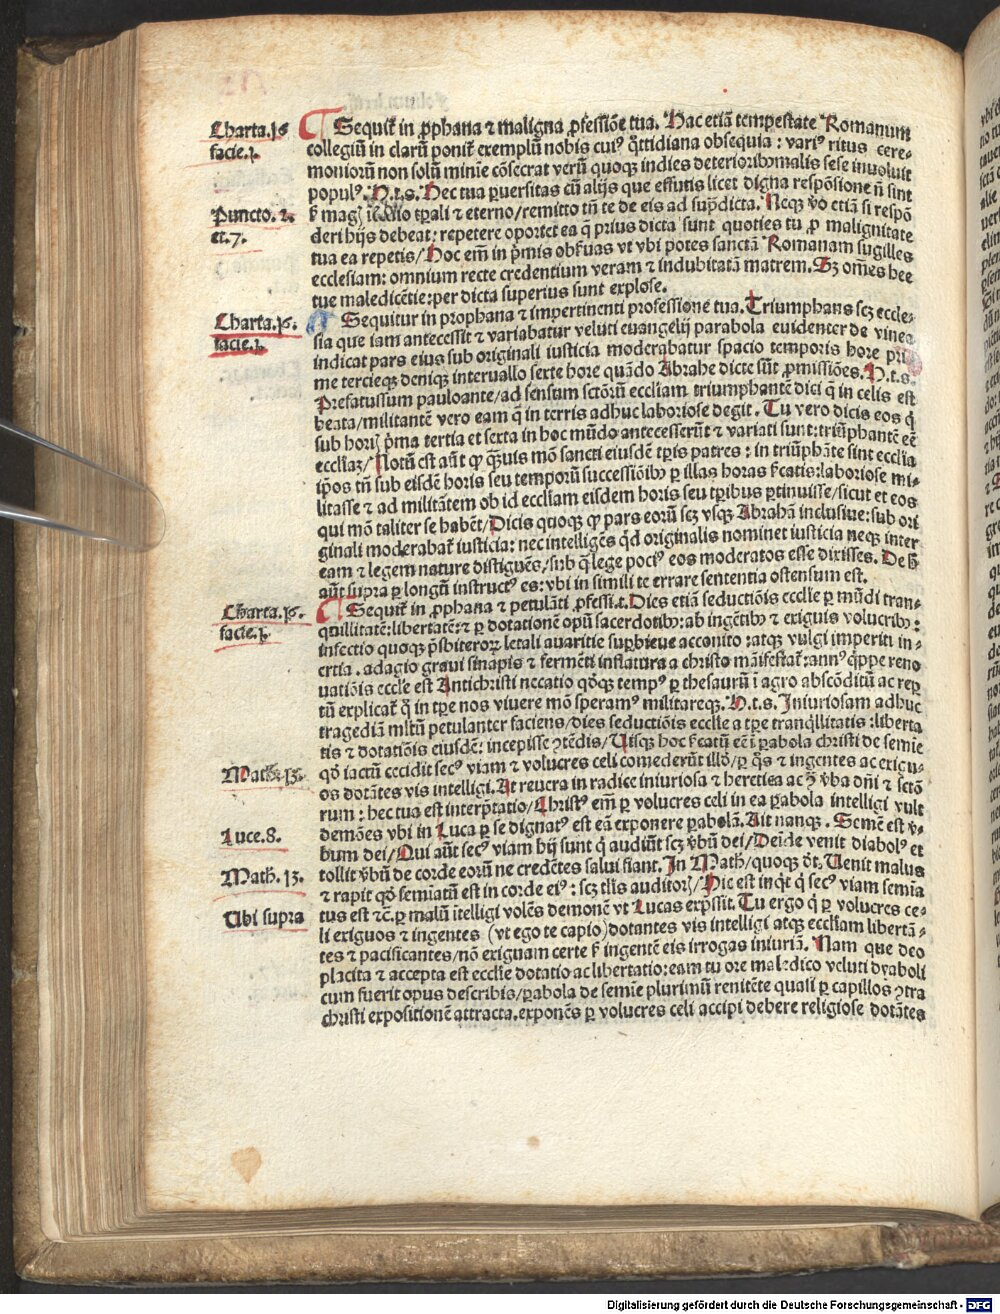 Charta.16
facie.1.
Sequit͛ in ꝓphana ⁊ maligna ꝓfessiōe tua. Hac etiā tempestate Romanum
collegiū in clarū ponit͛ exemplū nobis cuiꝰ q̄ttidiana obsequia : variꝰ ritus cere⸗
moniorū non solū minie cōsecrat verū quoqꝫ indies deterioribꝰ malis sese inuoluit
populꝰ. N.t.s. Hec tua ꝑuersitas cū alijs que effutis licet digna respōsione n̄ sint
Puncto. 2.
et.7.
tꝑali ⁊ eterno/remitto tn̄ te de eis ad supͣdicta. Neqꝫ v̓o etiā si respō
deri hijs debeat: repetere oportet ea q̄ prius dicta sunt quoties tu ꝓ malignitate
tua ea repetis/Hoc em̄ in p̓mis obs̓uas vt vbi potes sanctā Romanam sugilles
ecclesiam: omnium recte credentium veram ⁊ indubitatā matrem. Sꝫ om̄es hee
tue maledicētie: per dicta superius sunt explose.
Charta.16.
facie.1.
Sequitur in prophana ⁊ impertinenti professione tua. Triumphans scꝫ eccle⸗
sia que iam antecessit ⁊ variabatur veluti euangelij parabola euidenter de vinea
indicat pars eius sub originali iusticia moderabatur spacio temporis hore pri
me tercieqꝫ deniqꝫ interuallo sexte hore quādo Abrahe dicte sūt ꝓmissiōes. N.t.s.
Prefatussum pauloante/ad sensum sctōrū eccliam triumphantē dici q̄ in celis est
beata/militantē vero eam q̄ in terris adhuc laboriose degit. Tu vero dicis eos q̄
sub horis p̓ma tertia et sexta in hoc mūdo antecesserūt ⁊ variati sunt: triūphantē eē
eccliaꝫ/Notū est aūt ꝙ q̄uis mō sancti eiusdē tꝑis patres : in triūphāte sint ecclia
ip̄os tn̄ sub eisdē horis seu temporū successiōibꝰ ꝑ illas horas s̓catis: laboriose mi⸗
litasse ⁊ ad militātem ob id eccliam eisdem horis seu tꝑibus ꝑtinuisse/sicut et eos
qui mō taliter se habēt/Dicis quoqꝫ ꝙ pars eorū scꝫ vsqꝫ Abrahā inclusiue: sub ori
ginali moderabat͛ iusticia: nec intelligēs qd̄ originalis nominet iusticia neqꝫ inter
eam ⁊ legem nature distiguēs/sub q̄ lege pociꝰ eos moderatos esse dixisses. De h̓
aūt supra ꝑ longū instructꝰ es: vbi in simili te errare sententia ostensum est.
Charta.16.
facie.1.
Sequit͛ in ꝓphana ⁊ petulāti ꝓfessi.t. Dies etiā seductiōis ecclie ꝑ mūdi tran⸗
quillitatē: libertatē: ⁊ ꝑ dotationē opū sacerdotibꝰ: ab ingētibꝰ ⁊ exiguis volucribꝰ:
infectio quoqꝫ p̄sbiteroꝝ letali auaritie supbieue acconito : atqꝫ vulgi imperiti in⸗
ertia . adagio graui sinapis ⁊ fermēti inflatura a christo māifestat͛: annꝰ q̄ppe reno
uatiōis ecclie est Antichristi necatio qōqꝫ tempꝰ ꝑ thesaurū ī agro abscōditū ac reꝑ
tū explicat͛ q̄ in tꝑe nos viuere mō speramꝰ militareqꝫ. N.t.s. Iniuriosam adhuc
tragediā mltū petulanter faciens/dies seductiōis ecclie a tꝑe tranq̄llitatis : liberta
tis ⁊ dotatiōis eiusdē: incepisse ꝯtēdis/Uisqꝫ hoc s̓catū eē ī ꝑabola christi de semie
Math. 13.
qō iactū cecidit secꝰ viam ⁊ volucres celi comederūt illō/ꝑ q̄s ⁊ ingentes ac exigu⸗
os dotātes vis intelligi. At reuera in radice iniuriosa ⁊ heretica ac ꝯ̄ v̓ba dn̄i ⁊ sctō
rum : hec tua est interp̄tatio/Christꝰ em̄ ꝑ volucres celi in ea ꝑabola intelligi vult
Luce.8.
demōes vbi in Luca ꝑ se dignatꝰ est eā exponere ꝑabolā. Ait nanqꝫ . Semē est v̓⸗
bum dei/Qui aūt secꝰ viam hij sunt q̄ audiūt scꝫ v̓bū dei/Deīde venit diabolꝰ et
Math. 13.
tollit v̓bū de corde eorū ne credētes salui fiant. In Math/quoqꝫ ōt. Uenit malus
⁊ rapit qō semīatū est in corde eiꝰ : scꝫ tlis auditorꝫ/Hic est inqͥt q̄ secꝰ viam semia
Ubi supra
tus est ⁊c̄. ꝑ malū ītelligi volēs demonē vt Lucas exp̄ssit. Tu ergo q̄ ꝑ volucres ce⸗
li exiguos ⁊ ingentes (vt ego te capio) dotantes vis intelligi atqꝫ eccliam libertā⸗
tes ⁊ pacificantes/nō exiguam certe s̓ ingentē eis irrogas iniuriā. Nam que deo
placita ⁊ accepta est ecclie dotatio ac libertatio: eam tu ore maledico veluti dyaboli
cum fuerit opus describis/ꝑabola de semīe plurimū renitēte quasi ꝑ capillos ꝯtra
christi expositionē attracta. exponēs ꝑ volucres celi accipi debere religiose dotātes
Digitalisierung gefördert durch die Deutsche Forschungsgemeinschaft - DFG